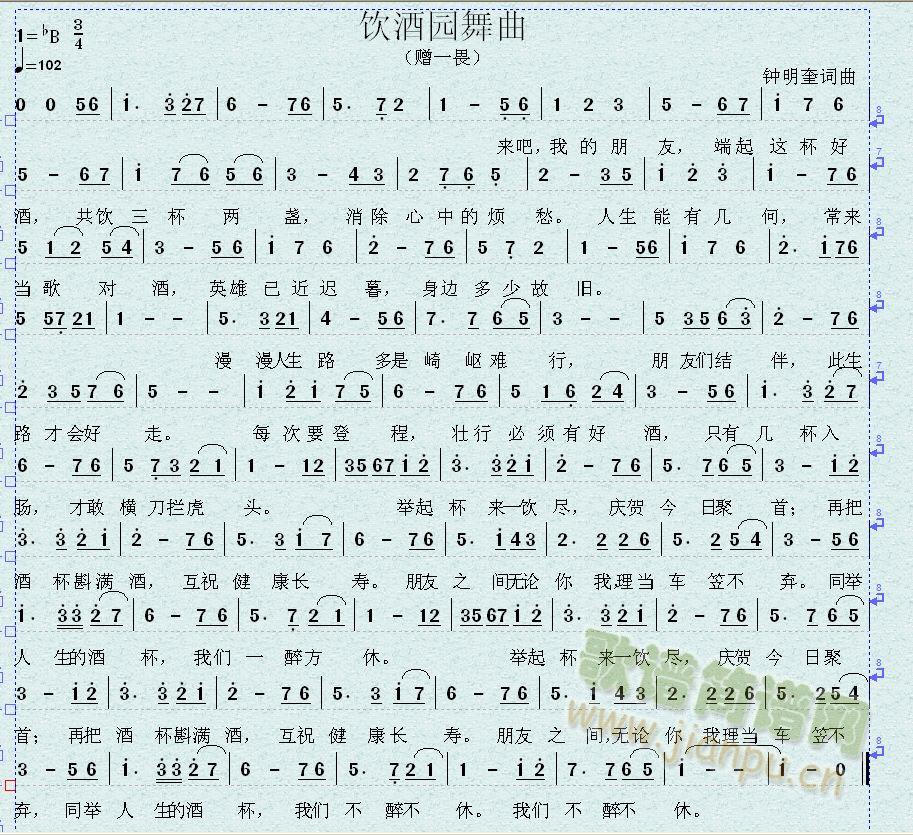 饮酒园舞曲
1=♭B 3/4
（赠一畏）
♩=102
钟明奎词曲
0 0 56 | 1. 327 | 6 - 76 | 5. 72 | 1 - 56 | 1 2 3 | 5 - 67 | 1 7 6
来吧，我的朋友，端起这杯好
5 - 67 | 1 76 56 | 3 - 43 | 2 76 5 | 2 - 35 | 1 2 3 | 1 - 76
酒，共饮三杯两盏，消除心中的烦愁。人生能有几何，常来
5 12 54 | 3 - 56 | 1 7 6 | 2 - 76 | 5 7 2 | 1 - 56 | 1 7 6 | 2. 176
当歌对酒，英雄已近迟暮，身边多少故旧。
5 5721 | 1 - - | 5. 321 | 4 - 56 | 7. 765 | 3 - - | 5 3563 | 2 - 76
漫漫人生路多是崎岖难行，朋友们结伴，此生
2 3576 | 5 - - | 1 2175 | 6 - 76 | 5 16 24 | 3 - 56 | 1. 327
路才会好走。每次要登程，壮行必须有好酒，只有几杯入
6 - 76 | 5 7321 | 1 - 12 | 356712 | 3. 321 | 2 - 76 | 5. 765 | 3 - 12
肠，才敢横刀拦虎头。举起杯来一饮尽，庆贺今日聚首；再把
3. 321 | 2 - 76 | 5. 317 | 6 - 76 | 5. 143 | 2. 226 | 5. 254 | 3 - 56
酒杯斟满酒，互祝健康长寿。朋友之间无论你我，理当车笠不弃。同举
1. 3327 | 6 - 76 | 5. 721 | 1 - 12 | 356712 | 3. 321 | 2 - 76 | 5. 765
人生的酒杯，我们一醉方休。举起杯来一饮尽，庆贺今日聚
3 - 12 | 3. 321 | 2 - 76 | 5. 317 | 6 - 76 | 5. 143 | 2. 226 | 5. 254
首；再把酒杯斟满酒，互祝健康长寿。朋友之间，无论你我理当车笠不
3 - 56 | 1. 3327 | 6 - 76 | 5. 721 | 1 - 12 | 7. 765 | 1 - - | 1 - 0
弃，同举人生的酒杯，我们不醉不休。我们不醉不休。
歌谱简谱网
www.jianpu.cn